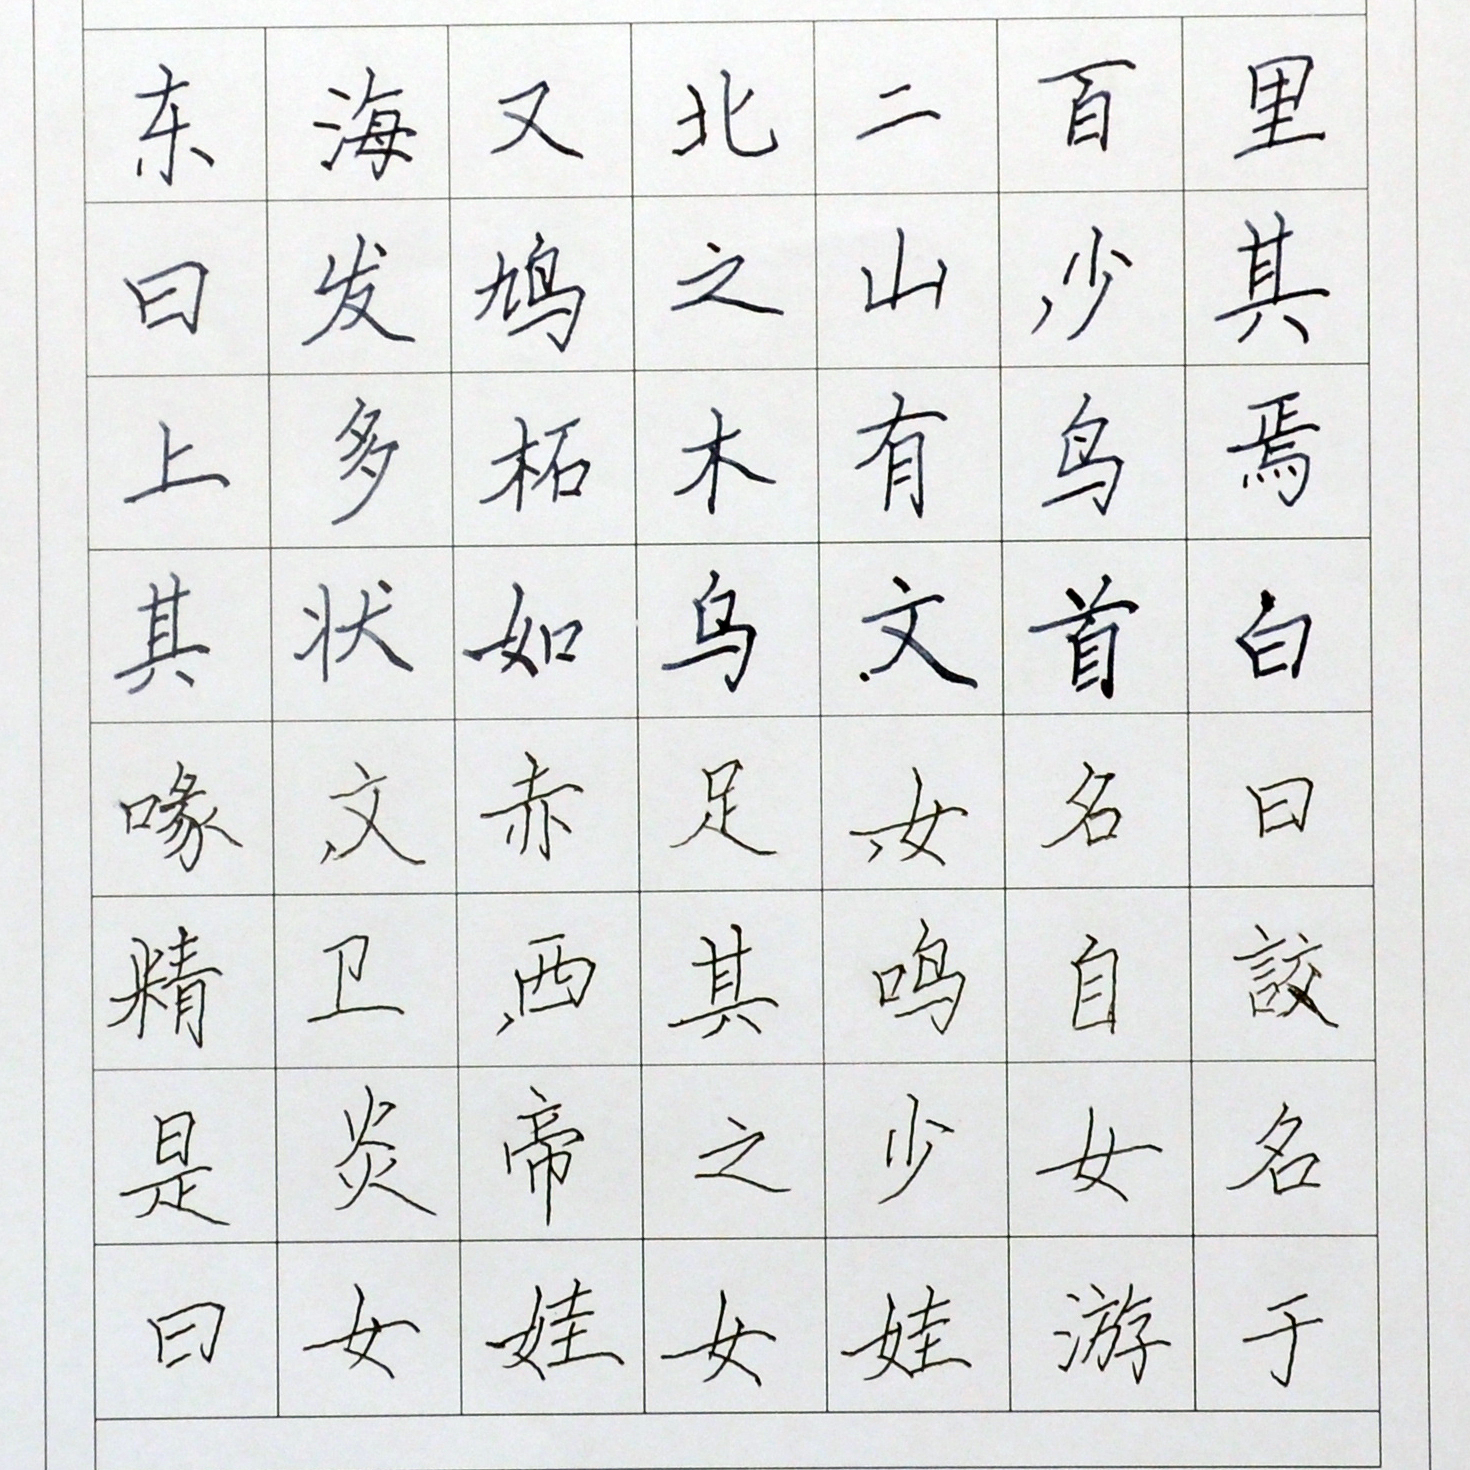 东海又北二百里
曰发鸠之山少其
上多柘木有鸟焉
其状如乌文首白
喙文赤足女名曰
精卫西其鸣自詨
是炎帝之少女名
曰女娃女娃游于